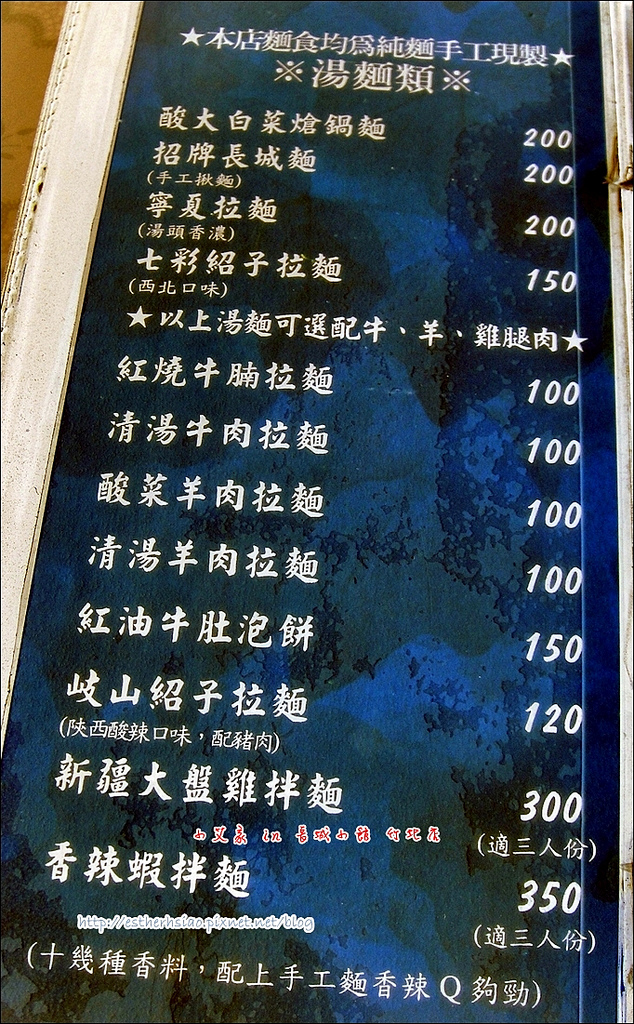 ★本店麵食均為純麵手工現製★
※湯麵類※
酸大白菜熗鍋麵 200
招牌長城麵 200
(手工揪麵)
寧夏拉麵 200
(湯頭香濃)
七彩紹子拉麵 150
(西北口味)
★以上湯麵可選配牛、羊、雞腿肉★
紅燒牛腩拉麵 100
清湯牛肉拉麵 100
酸菜羊肉拉麵 100
清湯羊肉拉麵 100
紅油牛肚泡餅 150
岐山紹子拉麵 120
(陝西酸辣口味,配豬肉)
新疆大盤雞拌麵 300
小艾家 in 長城小館 竹北店
(適三人份)
香辣蝦拌麵 350
http://estherhsiao.pixnet.net/blog
(適三人份)
(十幾種香料,配上手工麵香辣Q夠勁)